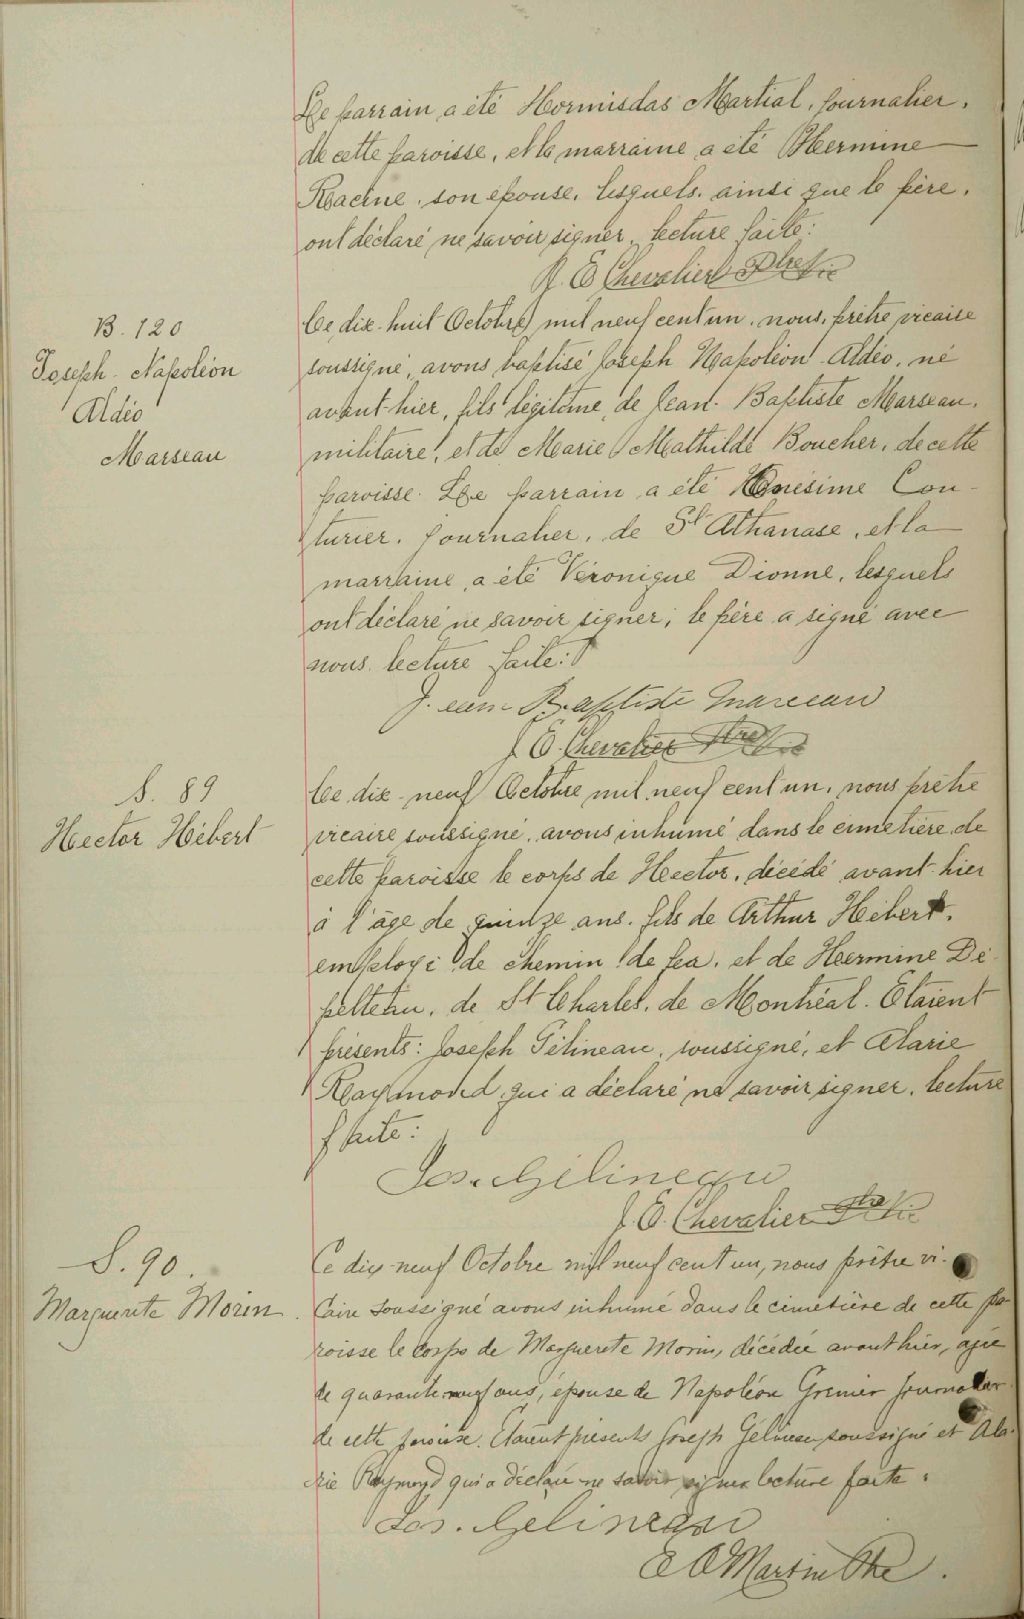 Le parrain a été Hormisdas Martial, journalier,
de cette paroisse, et la marraine a été Hermine
Racine, son épouse, lesquels, ainsi que le père,
ont déclaré ne savoir signer, lecture faite:
J. E. Chevalier Ptre Vic
B. 120
Joseph-Napoléon
Aldéo
Marseau
Ce dix-huit Octobre mil neuf cent un, nous, prêtre vicaire
soussigné, avons baptisé Joseph Napoléon Aldéo, né
avant-hier, fils légitime de Jean-Baptiste Marseau,
militaire, et de Marie Mathilde Boucher, de cette
paroisse. Le parrain a été Onésime Cou-
turier, journalier, de St Athanase, et la
marraine a été Véronique Dionne, lesquels
ont déclaré ne savoir signer; le père a signé avec
nous. lecture faite:
Jean-Baptiste Marceau
J. E. Chevalier Ptre Vic
S. 89
Hector Hébert
Ce dix-neuf Octobre mil neuf cent un, nous prêtre
vicaire soussigné, avons inhumé dans le cimetière de
cette paroisse le corps de Hector, décédé avant-hier
à l'âge de quinze ans, fils de Arthur Hébert,
employé de chemin de fer, et de Hermine Dé-
pelteau, de St Charles, de Montréal. Etaient
présents: Joseph Gélineau, soussigné, et Alarie
Raymond qui a déclaré ne savoir signer, lecture
faite:
Jos. Gélineau
J. E. Chevalier Ptre Vic
S. 90.
Marguerite Morin
Ce dix-neuf Octobre mil neuf cent un, nous prêtre vi-
caire soussigné avons inhumé dans le cimetière de cette pa-
roisse le corps de Marguerite Morin, décédée avant hier, agée
de quarante-neuf ans, épouse de Napoléon Grenier journalier
de cette paroisse. Etaient présents Joseph Gélineau soussigné et Ala-
rie Raymond qui a déclaré ne savoir signer lecture faite.
Jos. Gelineau
E O Martin Ptre.